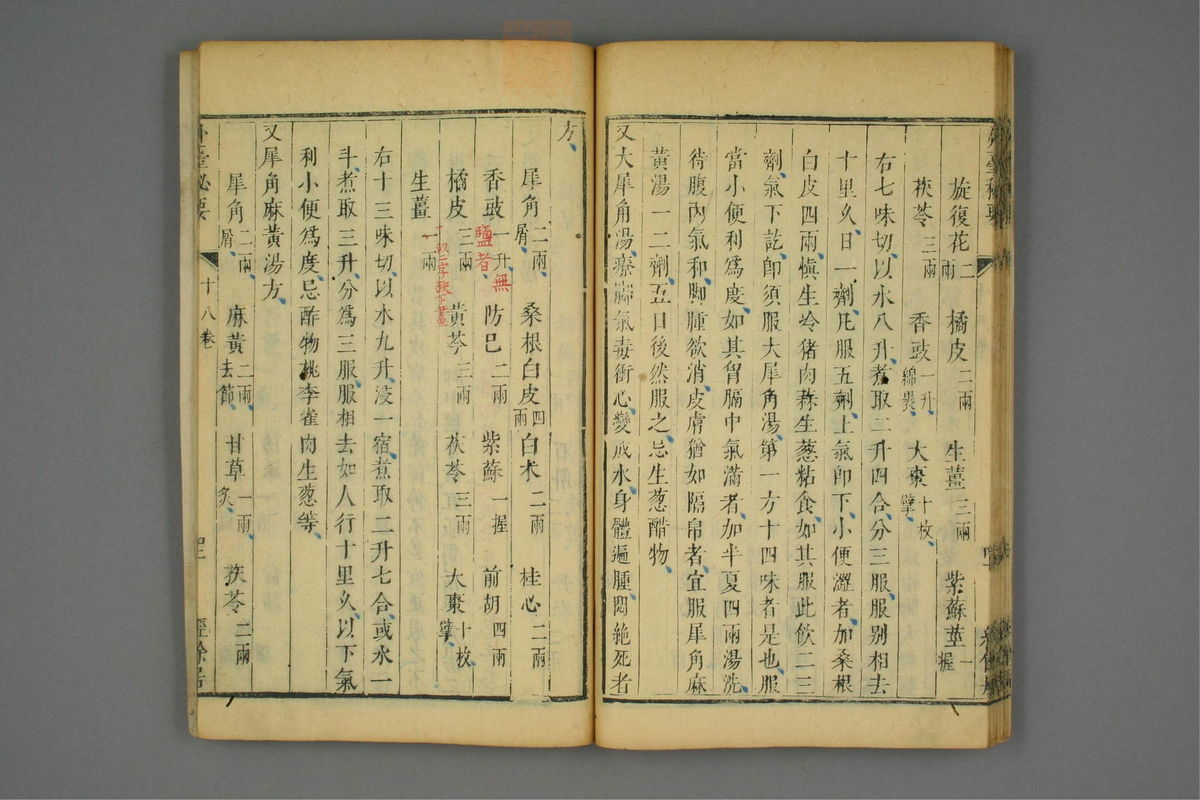 旋復花二兩 橘皮二兩 生薑三兩 紫蘇莖一握
茯苓三兩 香豉一升綿裹 大棗十枚擘
右七味切以水八升煮取二升四合分三服服別相去
十里久日一劑凡服五劑上氣卽下小便澀者加桑根
白皮四兩愼生冷猪肉蒜生蔥粘食如其服此飲二三
劑氣下訖卽須服大犀角湯第一方十四味者是也服
當小便利爲度如其胷膈中氣滿者加半夏四兩湯洗
待腹內氣和脚腫欲消皮膚猶如隔帛者宜服犀角麻
黃湯一二劑五日後然服之忌生蔥醋物
又大犀角湯療脚氣毒衝心變成水身體遍腫悶絕死者
方
犀角二兩屑 桑根白皮四兩 白朮二兩 桂心二兩
香豉一升 防巳二兩 紫蘇一握 前胡四兩
無鹽者
橘皮三兩 黃芩三兩 茯苓三兩 大棗十枚擘
生薑一兩
右十三味切以水九升浸一宿煮取二升七合或水一
斗煮取三升分爲三服服相去如人行十里久以下氣
利小便爲度忌酢物桃李雀肉生蔥等
又犀角麻黃湯方
犀角二兩屑 麻黃二兩去節 甘草一兩炙 茯苓二兩
外臺祕要 十八卷 經餘居